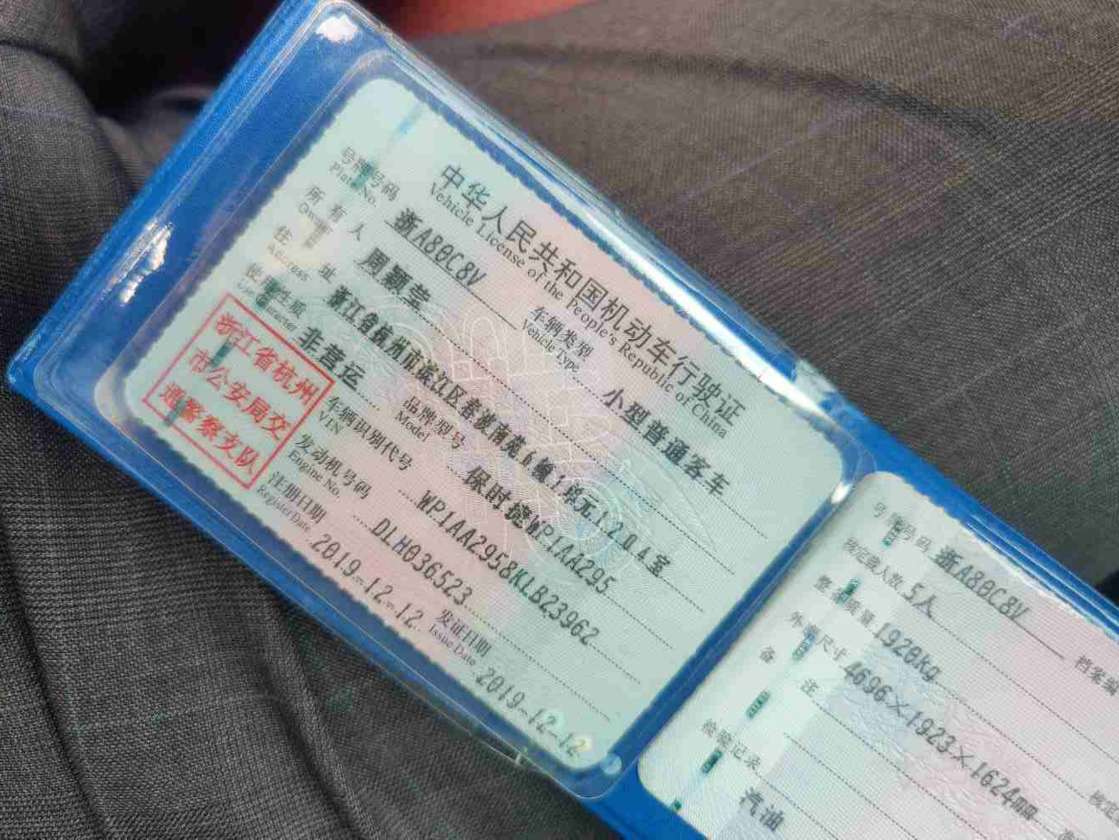 中华人民共和国机动车行驶证
Vehicle License of the People's Republic of China
号牌号码 浙A80C8V 车辆类型 小型普通客车
Plate No. Vehicle Type
所有人 周颖莹
Owner
住址 浙江省杭州市滨江区春波南苑6幢1单元1204室
Address
使用性质 非营运 品牌型号 保时捷WP1AA295
Use Character Model
浙江省杭州
市公安局交
通警察支队
车辆识别代号 WP1AA2958KLB23962
VIN
发动机号码 DLH036523
Engine No.
注册日期 2019-12-12 发证日期 2019-12-12
Register Date Issue Date
号牌号码 浙A80C8V 档案编
核定载人数 5人
整备质量 1920kg
外廓尺寸 4696×1923×1624mm
备注
检验记录
汽油